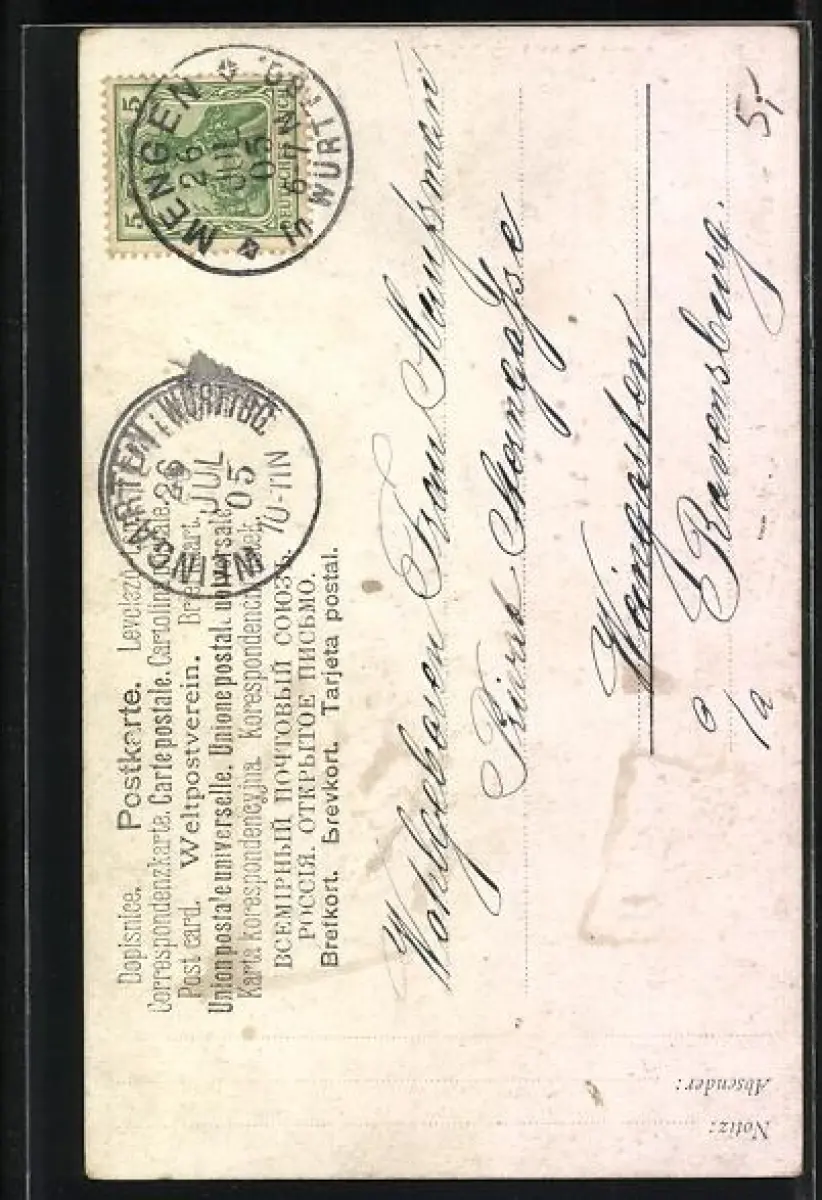 Dopisnice. Postkarte. Levelező-
Correspondenzkarte. Carte postale. Cartolina postale.
Post card. Weltpostverein. Brefkaart.
Union postale universelle. Unione postal. universale.
Karta korespondencyjna. Korespondenční
ВСЕМІРНЫЙ ПОЧТОВЫЙ СОЮЗЪ.
РОССІЯ. ОТКРЫТОЕ ПИСЬМО.
Brefkort. Brevkort. Tarjeta postal.
5 5
DEUTSCHES REICH
MENGEN
26
JUL
05
6-7 N
WÜRTT
WEINGARTEN i WÜRTTBG.
26
JUL
05
10-11N
Wohlgeboren Frau
Weingarten
Ravensburg.
5,-
Absender:
Notiz: